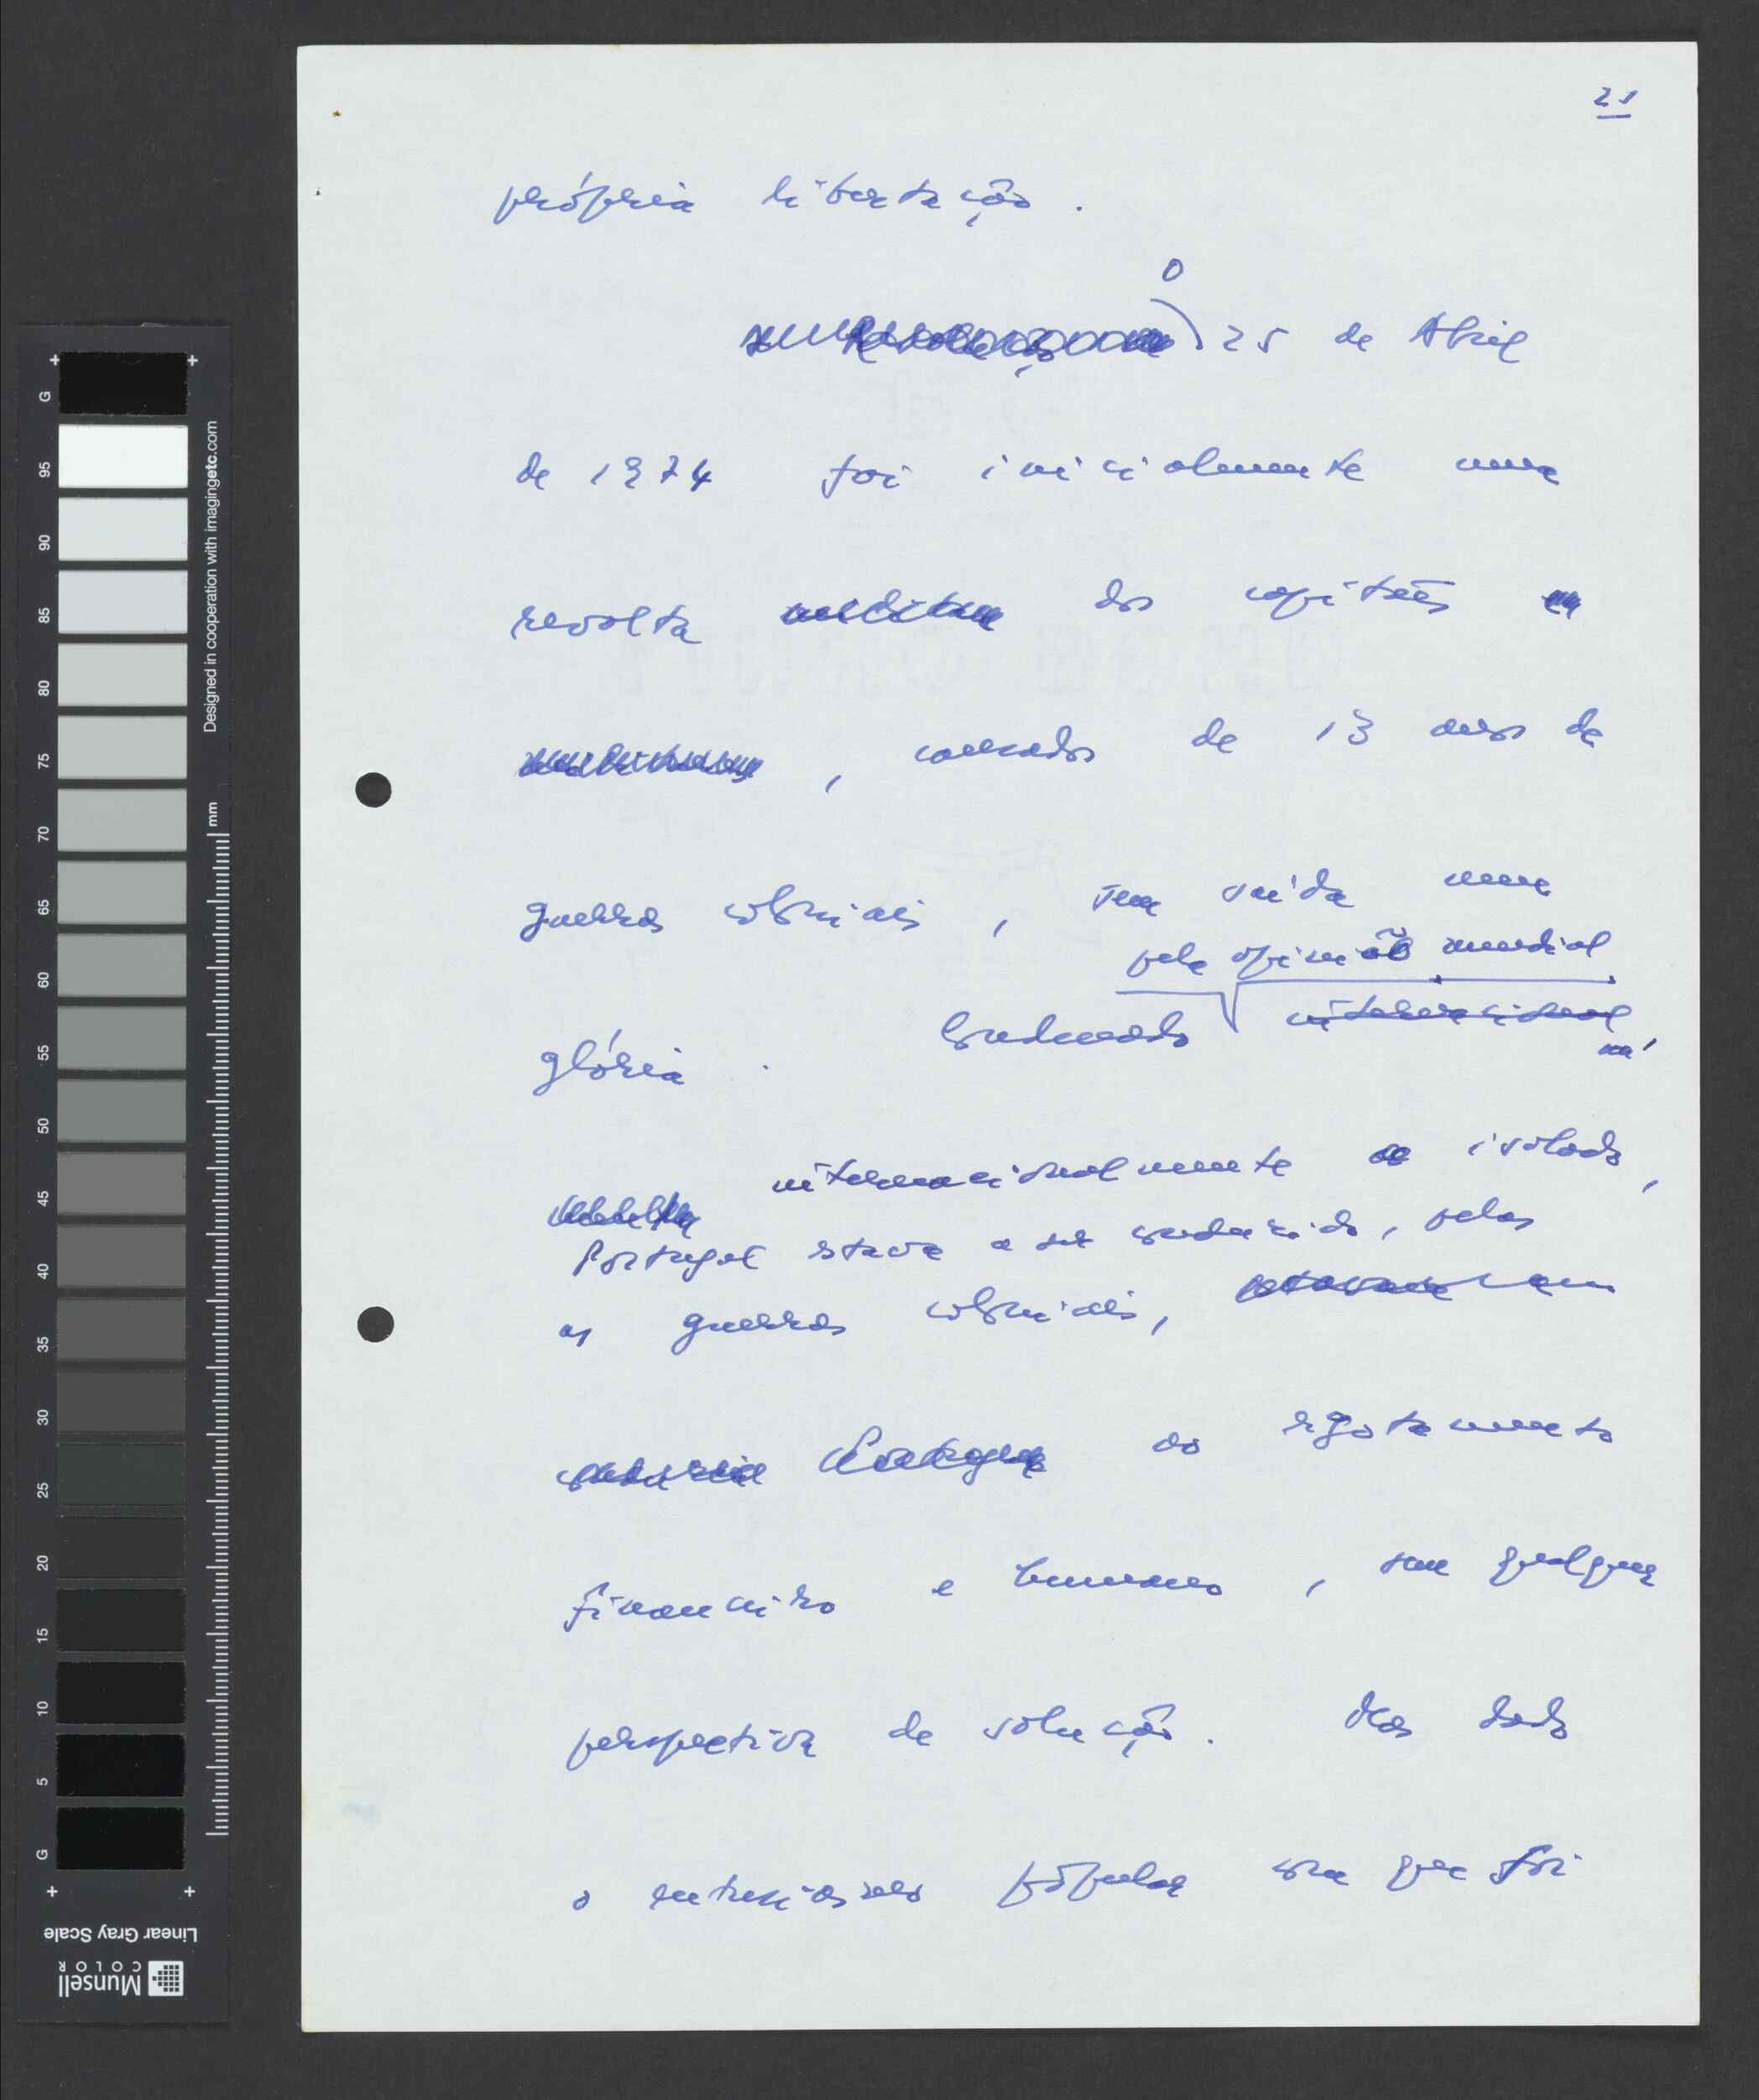 21
própria libertação.
O
25 de Abril
de 1974 foi inicialmente uma
revolta militar dos capitães
, cansados de 13 anos de
guerras coloniais, sem saída nem
pela opinião mundial
glória. Condenado internacional
internacionalmente e isolado,
Portugal estava a ser conduzido, pelas
as guerras coloniais, estavam a
conduzir Portugal ao esgotamento
financeiro e humano, sem qualquer
perspectiva de solução. Mas dado
o entusiasmo popular com que foi
G 95 90 85 80 75 70 65 60 55 50 45 40 35 30 25 20 15 10 5 G
Designed in cooperation with imagingetc.com
mm
Linear Gray Scale
Munsell
COLOR